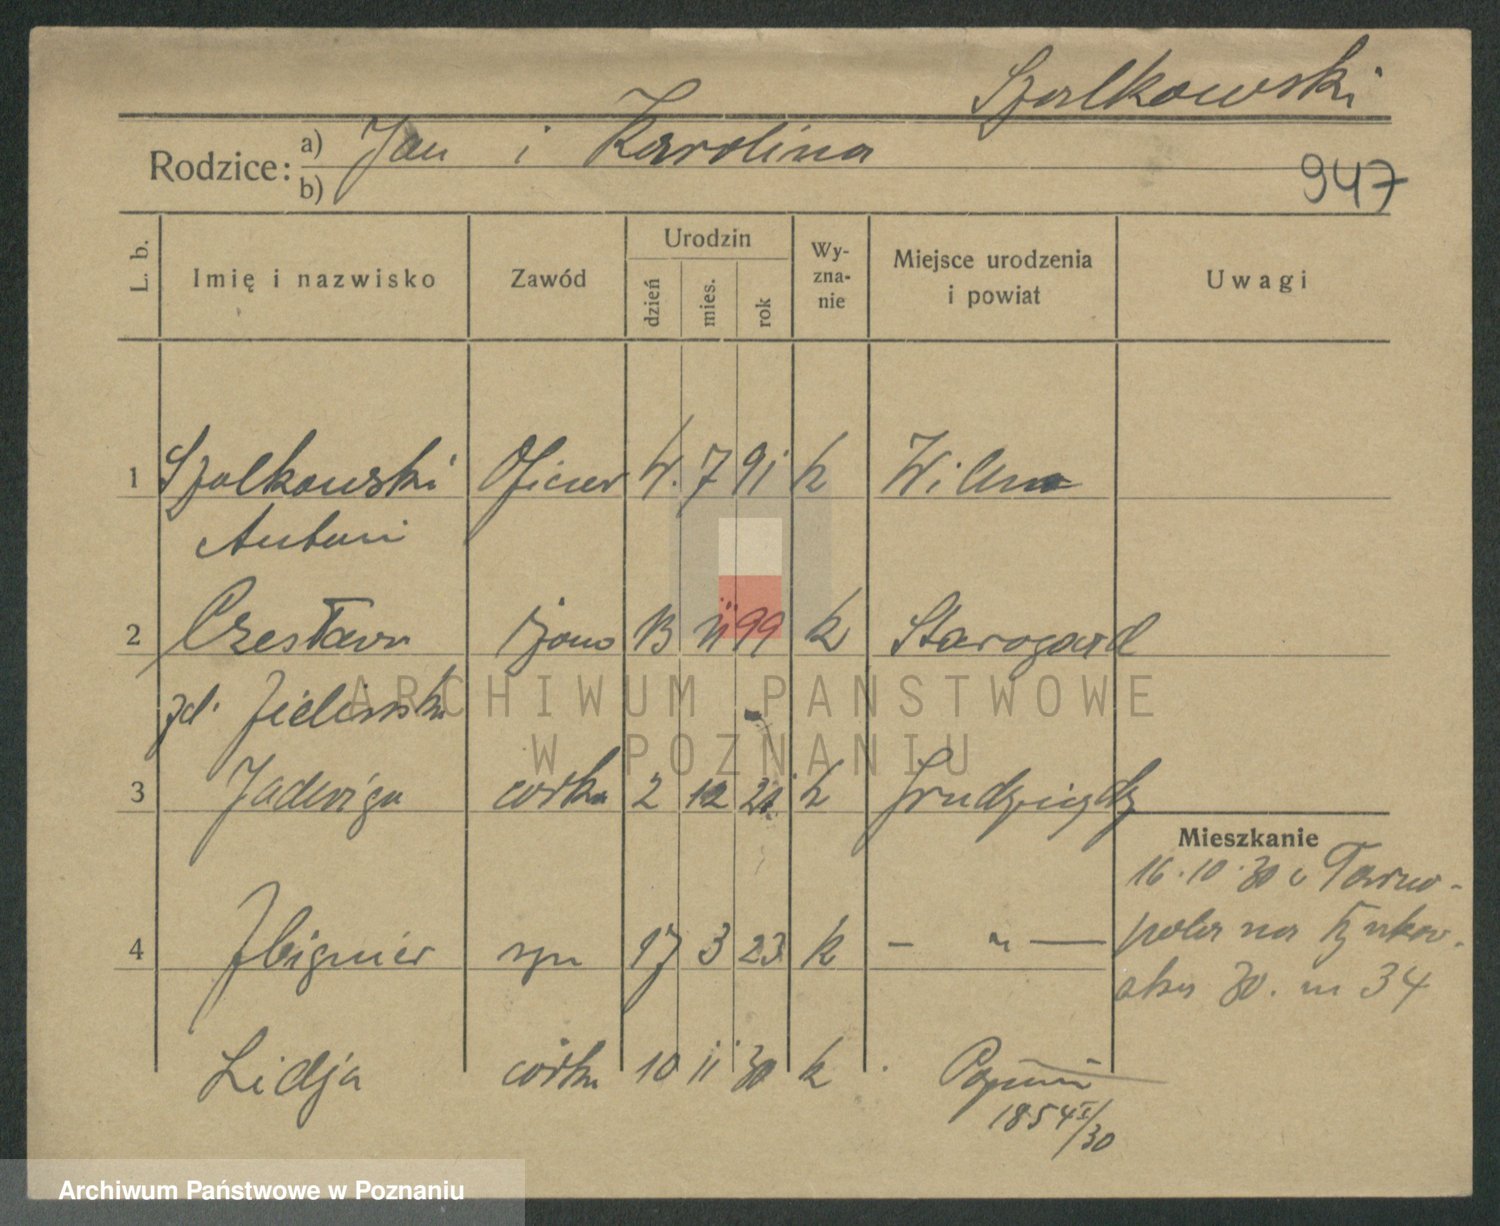 Szalkowski
Rodzice: a) Jan i Karolina
b)
947
L. b. Imię i nazwisko Zawód Urodzin dzień mies. rok Wy-zna-nie Miejsce urodzenia i powiat Uwagi
1 Szalkowski Oficer 4. 7 91 k Wilno
Antoni
2 Czesława żona 13 11 99 k Starogard
zd. Zielińska
3 Jadwiga córka 2 12 21 k Grudziądz
Mieszkanie
16.10.30 z Tarno-
pola na
4 Zbigniew syn 17 3 23 k — " —
30. m 34
Lidja córka 10 11 30 k Poznań
1854 I/30
ARCHIWUM PAŃSTWOWE
W POZNANIU
Archiwum Państwowe w Poznaniu